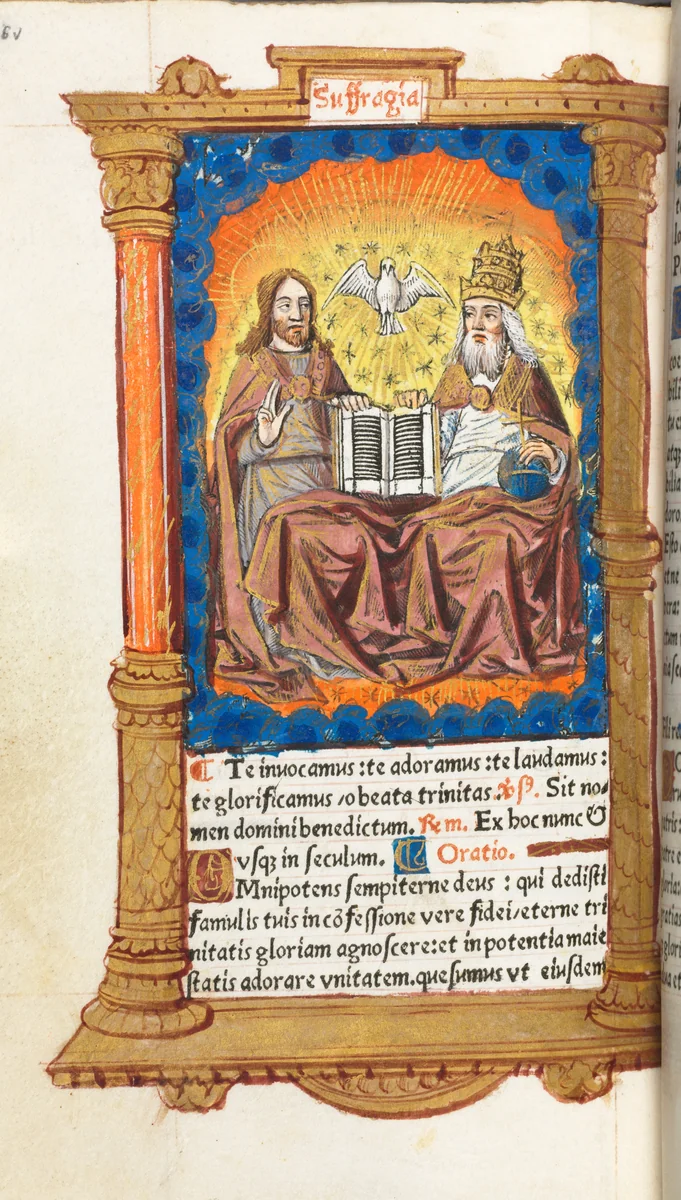 6v
Suffragia
Te inuocamus :te adoramus :te laudamus :
te glorificamus /o beata trinitas. Sit no/
men domini benedictum. Ex hoc nunc &
vsqꝫ in seculum. Oratio.
OMnipotens sempiterne deus : qui dedisti
famulis tuis in cõfessione vere fidei/eterne tri
nitatis gloriam agnoscere:et in potentia maie
statis adorare vnitatem.quesumus vt eiusdem